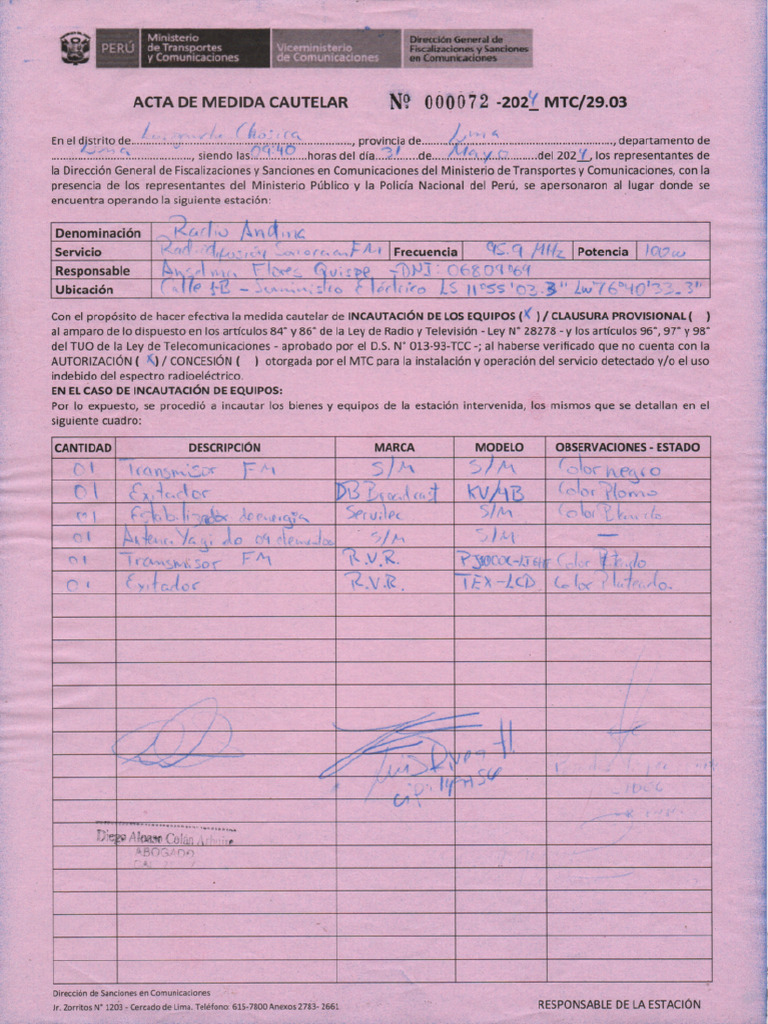 PERÚ
Ministerio de Transportes y Comunicaciones
Viceministerio de Comunicaciones
Dirección General de Fiscalizaciones y Sanciones en Comunicaciones
ACTA DE MEDIDA CAUTELAR Nº 000072 -2024 MTC/29.03
En el distrito de Chosica, provincia de Lima, departamento de
Lima, siendo las 09:40 horas del día 31 de Mayo del 2024, los representantes de
la Dirección General de Fiscalizaciones y Sanciones en Comunicaciones del Ministerio de Transportes y Comunicaciones, con la
presencia de los representantes del Ministerio Público y la Policía Nacional del Perú, se apersonaron al lugar donde se
encuentra operando la siguiente estación:
Denominación Radio Andina
Servicio Radiodifusión Sonora en FM Frecuencia 95.9 MHz Potencia 100w
Responsable Flores Quispe - DNI:
Ubicación Calle - Suministro Eléctrico LS 11°55'03.3" LW 76°40'33.3"
Con el propósito de hacer efectiva la medida cautelar de INCAUTACIÓN DE LOS EQUIPOS (X) / CLAUSURA PROVISIONAL ( )
al amparo de lo dispuesto en los artículos 84° y 86° de la Ley de Radio y Televisión - Ley N° 28278 - y los artículos 96°, 97° y 98°
del TUO de la Ley de Telecomunicaciones - aprobado por el D.S. N° 013-93-TCC -; al haberse verificado que no cuenta con la
AUTORIZACIÓN ( X ) / CONCESIÓN ( ) otorgada por el MTC para la instalación y operación del servicio detectado y/o el uso
indebido del espectro radioeléctrico.
EN EL CASO DE INCAUTACIÓN DE EQUIPOS:
Por lo expuesto, se procedió a incautar los bienes y equipos de la estación intervenida, los mismos que se detallan en el
siguiente cuadro:
CANTIDAD DESCRIPCIÓN MARCA MODELO OBSERVACIONES - ESTADO
01 Transmisor FM S/M S/M Color negro
01 Exitador DB Broadcast KV/MB Color Plomo
01 Estabilizador de energia Servitec S/M Color
01 Antena Yagi de S/M S/M —
01 Transmisor FM R.V.R. Color
01 Exitador R.V.R. TEX-LCD Color Plateado.
Diego Alonso Colán
ABOGADO
Dirección de Sanciones en Comunicaciones
Jr. Zorritos N° 1203 - Cercado de Lima. Teléfono: 615-7800 Anexos 2783- 2661
RESPONSABLE DE LA ESTACIÓN